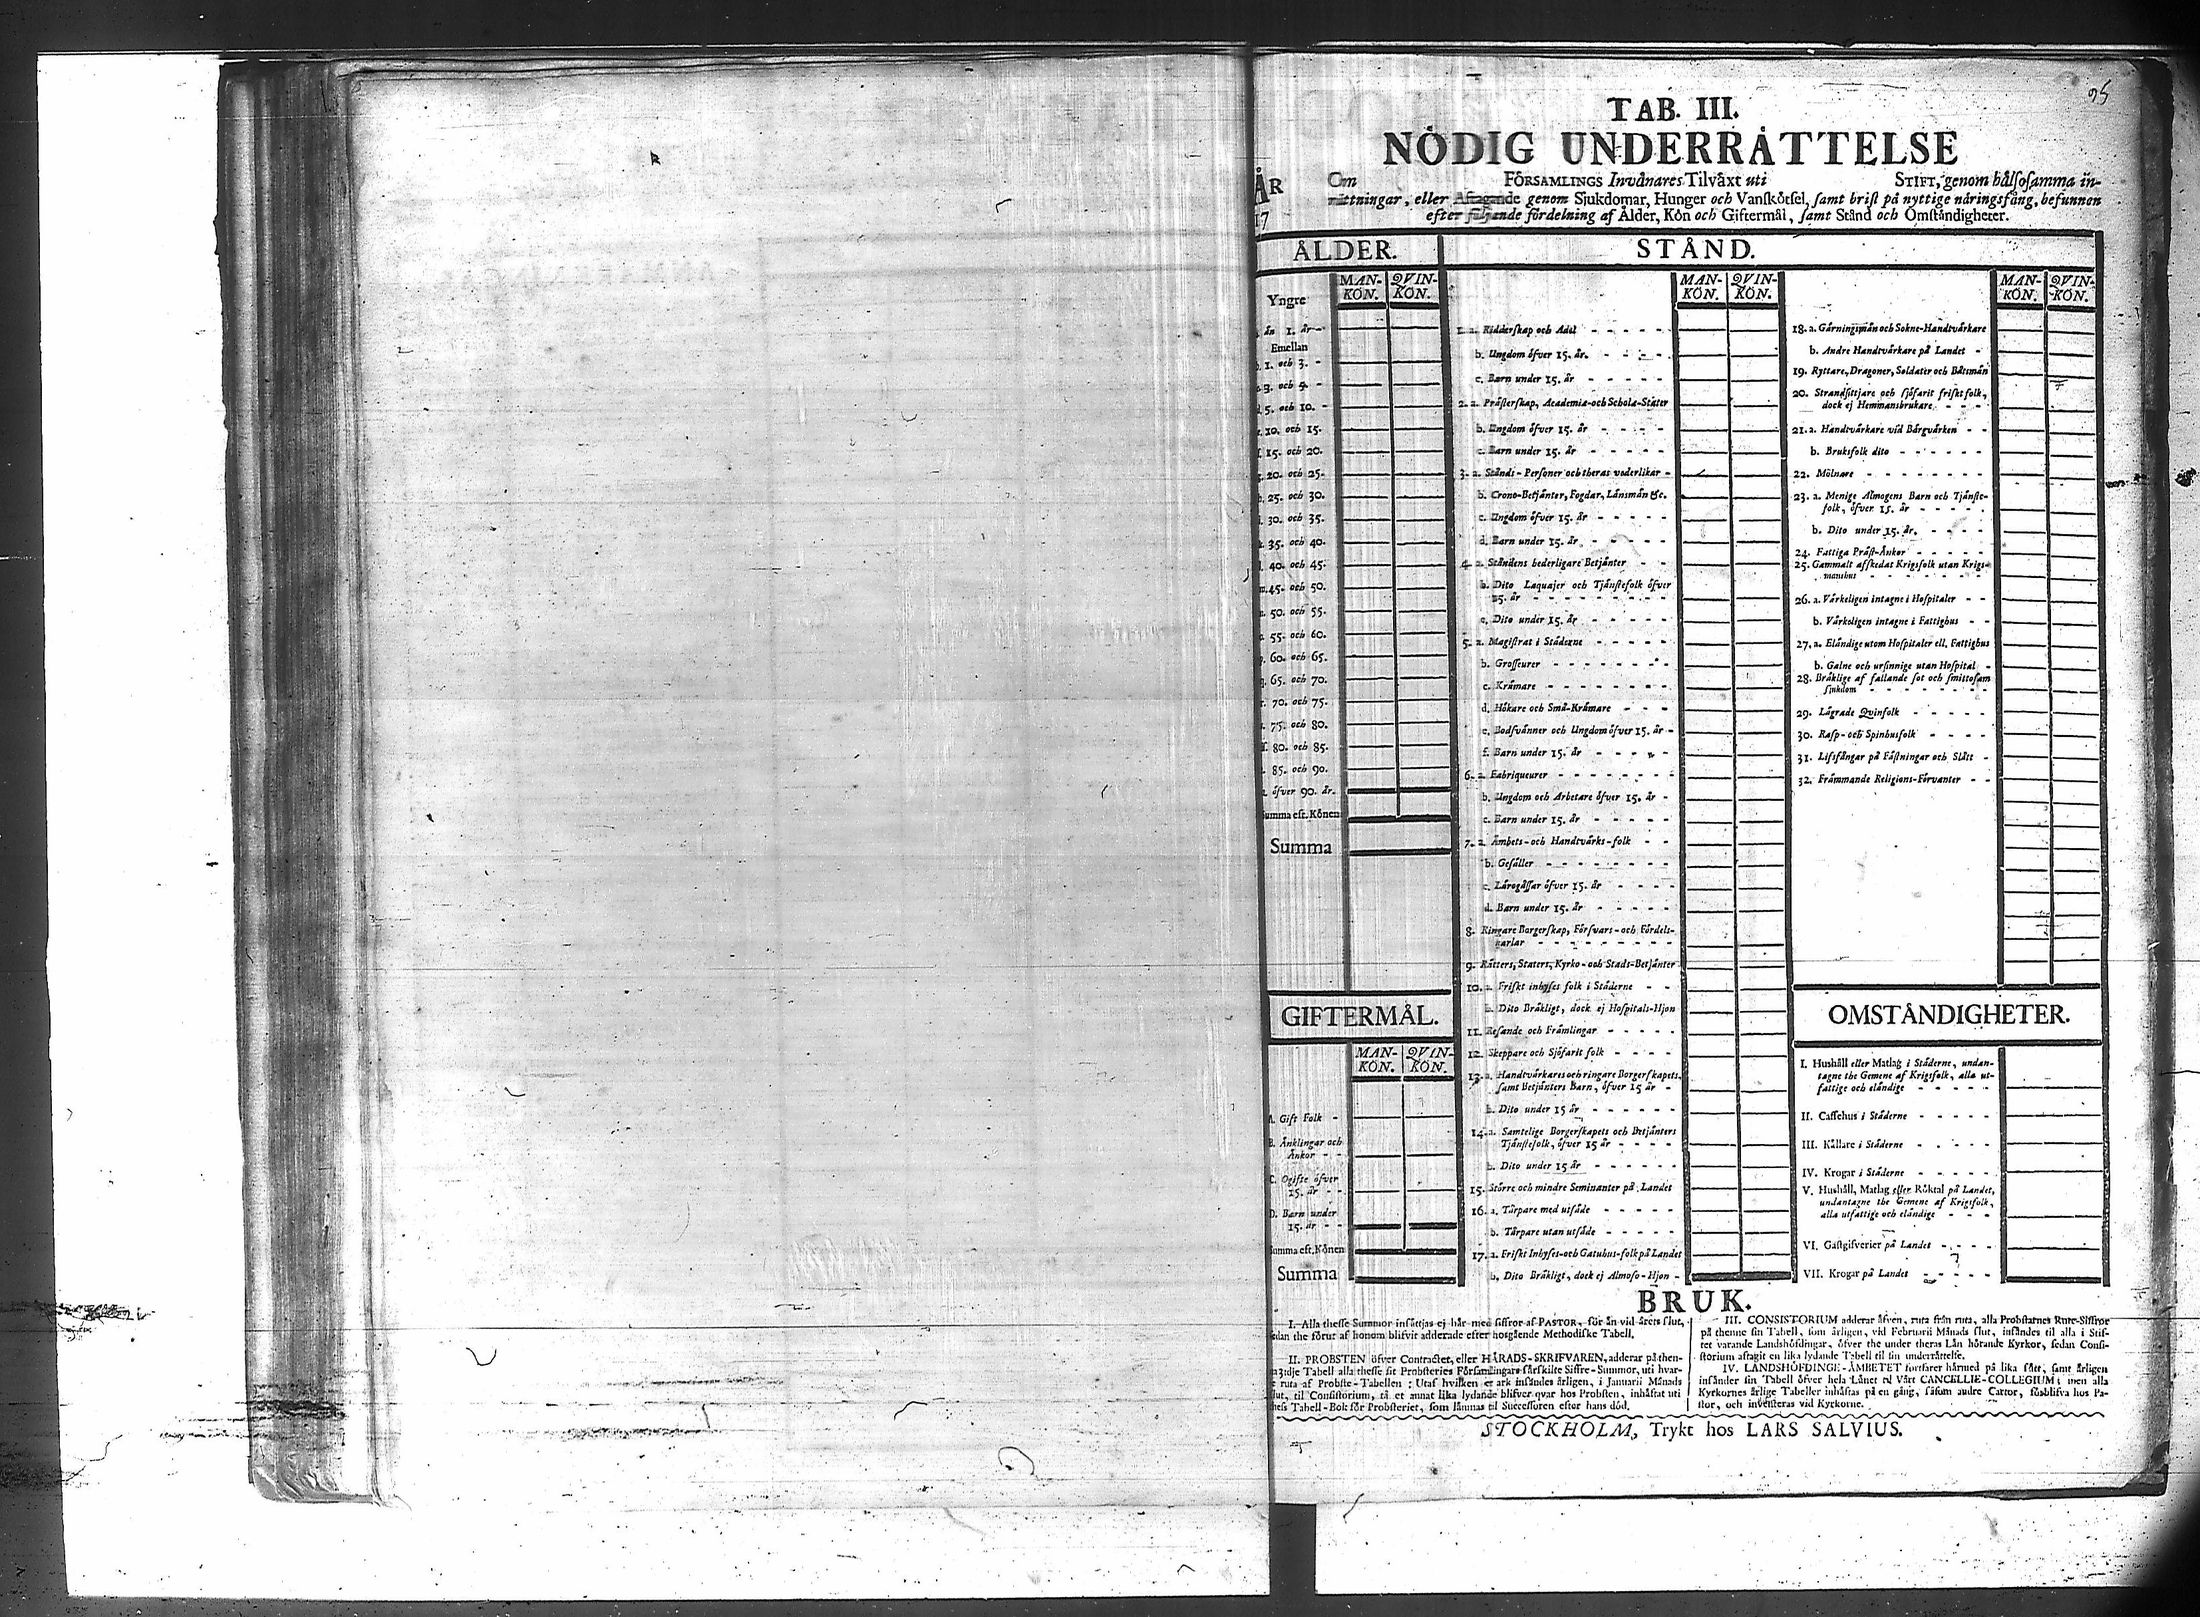 95
TAB. III.
NÖDIG UNDERRÅTTELSE
ÅR
17
Om FÖRSAMLINGS Invånares Tilvåxt uti STIFT, genom hålsosamma in-
råttningar, eller Aftagande genom Sjukdomar, Hunger och Vanskötsel, samt brist på nyttige nåringsfång, befunnen
efter följande fördelning af Ålder, Kön och Giftermål, samt Stånd och Omståndigheter.
ÅLDER.
MAN-KÖN. QVIN-KÖN.
Yngre
ån 1. år
Emellan
1. och 3.
3. och 5.
5. och 10.
10. och 15.
15. och 20.
20. och 25.
25. och 30.
30. och 35.
35. och 40.
40. och 45.
45. och 50.
50. och 55.
55. och 60.
60. och 65.
65. och 70.
70. och 75.
75. och 80.
80. och 85.
85. och 90.
öfver 90. år.
Summa eft. Könen
Summa
GIFTERMÅL.
MAN-KÖN. QVIN-KÖN.
A. Gift Folk
B. Änklingar och
Änkor
C. Ogifte öfver
15. år
D. Barn under
15. år
Summa eft. Könen
Summa
STÅND.
MAN-KÖN. QVIN-KÖN.
1. a. Ridderskap och Adel
b. Ungdom öfver 15. år.
c. Barn under 15. år
2. a. Pråsterskap, Academiæ-och Scholæ-Stater
b. Ungdom öfver 15. år
c. Barn under 15. år
3. a. Stånds-Personer och theras vederlikar
b. Crono-Betjånter, Fogdar, Lånsmån &c.
c. Ungdom öfver 15. år
d. Barn under 15. år
4. a. Ståndens hederligare Betjånter
b. Dito Laquajer och Tjånstefolk öfver
15. år
c. Dito under 15. år
5. a. Magistrat i Ståderne
b. Grosseurer
c. Kråmare
d. Hökare och Små-Kråmare
e. Bodsvånner och Ungdom öfver 15. år
f. Barn under 15. år
6. a. Fabriqueurer
b. Ungdom och Arbetare öfver 15. år
c. Barn under 15. år
7. a. Åmbets-och Handtvårks-folk
b. Gesåller
c. Lårogåssar öfver 15. år
d. Barn under 15. år
8. Ringare Borgerskap, Försvars-och Fördels-
karlar
9. Råtters, Staters, Kyrko-och Stads-Betjånter
10. a. Friskt inhyses folk i Ståderne
b. Dito Bråkligt, dock ej Hospitals-Hjon
11. Resande och Fråmlingar
12. Skeppare och Sjöfarit folk
13. a. Handtvårkares och ringare Borgerskapets,
samt Betjånters Barn, öfver 15 år
b. Dito under 15 år
14. a. Samtelige Borgerskapets och Betjånters
Tjånstefolk, öfver 15 år
b. Dito under 15 år
15. Större och mindre Seminanter på Landet
16. a. Tårpare med utsåde
b. Tårpare utan utsåde
17. a. Friskt Inhyses-och Gatuhus-folk på Landet
b. Dito Bråkligt, dock ej Almoso-Hjon
MAN-KÖN. QVIN-KÖN.
18. a. Gårningsmån och Sokne-Handtvårkare
b. Andre Handtvårkare på Landet
19. Ryttare, Dragoner, Soldater och Båtsmån
20. Strandsittjare och sjöfarit friskt folk,
dock ej Hemmansbrukare
21. a. Handtvårkare vid Bårgvårken
b. Bruksfolk dito
22. Mölnare
23. a. Menige Almogens Barn och Tjånste-
folk, öfver 15. år
b. Dito under 15. år.
24. Fattiga Pråst-Änkor
25. Gammalt afskedat Krigsfolk utan Krigs-
manshus
26. a. Vårkeligen intagne i Hospitaler
b. Vårkeligen intagne i Fattighus
27. a. Elåndige utom Hospitaler ell. Fattighus
b. Galne och ursinnige utan Hospital
28. Bråklige af fallande sot och smittosam
sjukdom
29. Lågrade Qvinfolk
30. Rasp-och Spinhusfolk
31. Lifsfångar på Fåstningar och Slått
32. Fråmmande Religions-Förvanter
OMSTÅNDIGHETER.
I. Hushåll eller Matlag i Ståderne, undan-
tagne the Gemene af Krigsfolk, alla ut-
fattige och elåndige
II. Caffehus i Ståderne
III. Kållare i Ståderne
IV. Krogar i Ståderne
V. Hushåll, Matlag eller Röktal på Landet,
undantagne the Gemene af Krigsfolk,
alla utfattige och elåndige
VI. Gåstgifverier på Landet
VII. Krogar på Landet
BRUK.
I. Alla thesse Summor insåttjas ej hår med siffror af PASTOR, för ån vid årets slut,
sedan the förut af honom blifvit adderade efter hosgående Methodiske Tabell.
II. PROBSTEN öfver Contractet, eller HÅRADS-SKRIFVAREN, adderar på then-
na 3:dje Tabell alla thesse sit Probsteries Församlingars sårskilte Siffre-Summor, uti hvar-
je ruta af Probste-Tabellen; Utaf hvilken et ark insåndes årligen, i Januarii Månads
slut, til Consistorium, tå et annat lika lydande blifver qvar hos Probsten, inhåftat uti
thess Tabell-Bok för Probsteriet, som låmnas til Successoren efter hans död.
III. CONSISTORIUM adderar åfven, ruta från ruta, alla Probstarnes Rute-Siffror
på thenne sin Tabell, som årligen, vid Februarii Månads slut, insåndes til alla i Stif-
tet varande Landshöfdingar, öfver the under theras Lån hörande Kyrkor, sedan Consi-
storium aftagit en lika lydande Tabell til sin underråttelse.
IV. LANDSHÖFDINGE-ÅMBETET fortfarer hårmed på lika sått, samt årligen
insånder sin Tabell öfver hela Lånet til Vårt CANCELLIE-COLLEGIUM; men alla
Kyrkornes årlige Tabeller inhåftas på en gång, såsom andre Cartor, som blifva hos Pa-
stor, och inventeras vid Kyrkorne.
STOCKHOLM, Trykt hos LARS SALVIUS.